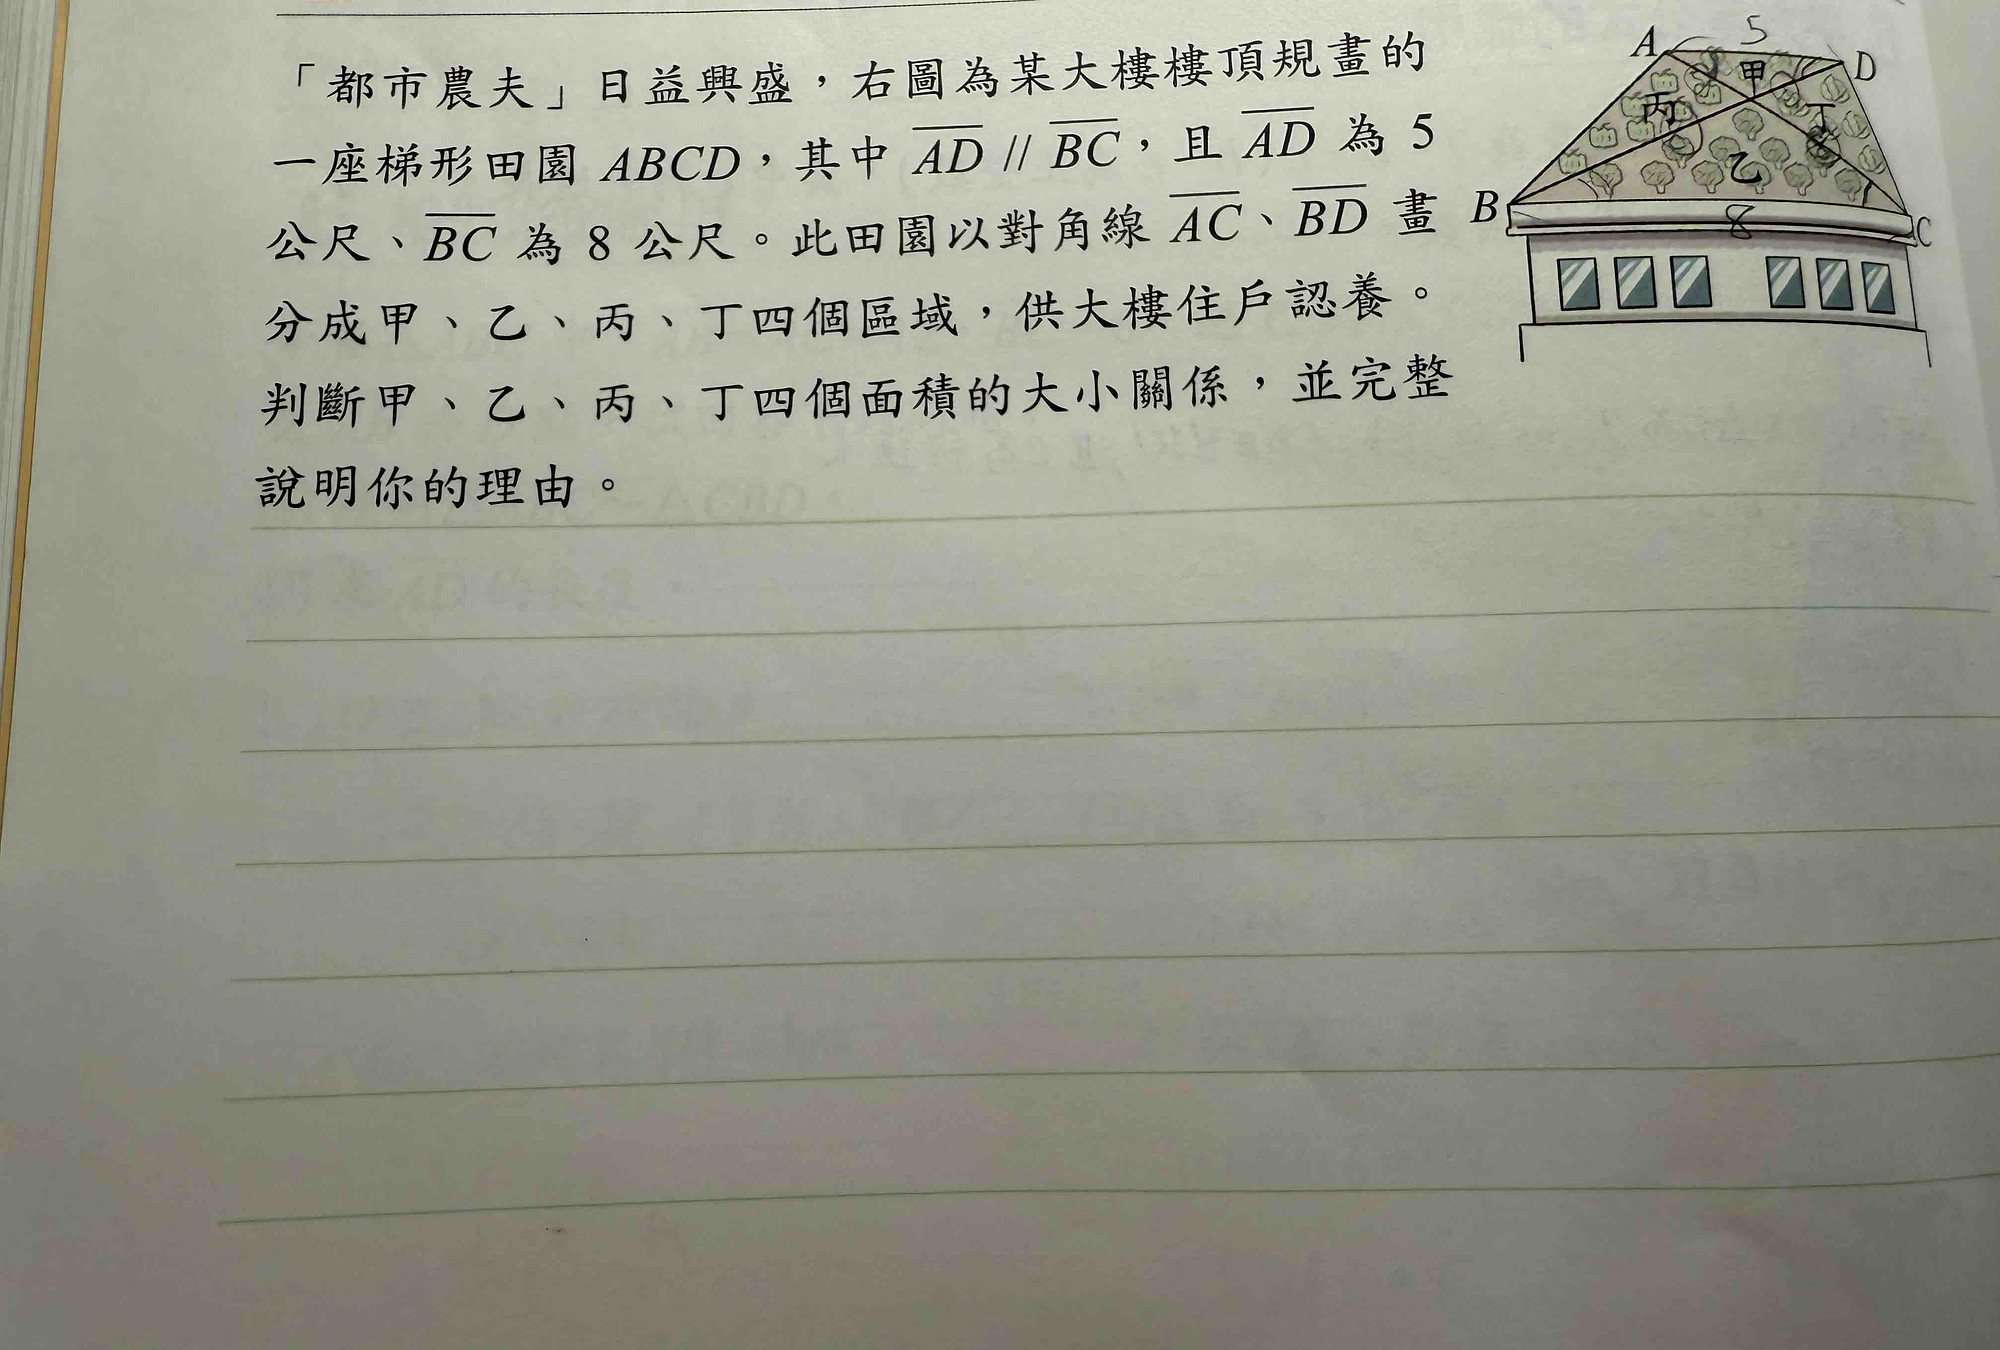 「都市農夫」日益興盛，右圖為某大樓樓頂規畫的
一座梯形田園 ABCD，其中 AD // BC，且 AD 為 5
公尺、BC 為 8 公尺。此田園以對角線 AC、BD 畫
分成甲、乙、丙、丁四個區域，供大樓住戶認養。
判斷甲、乙、丙、丁四個面積的大小關係，並完整
說明你的理由。
5
A
D
甲
丙
丁
乙
B
8
C